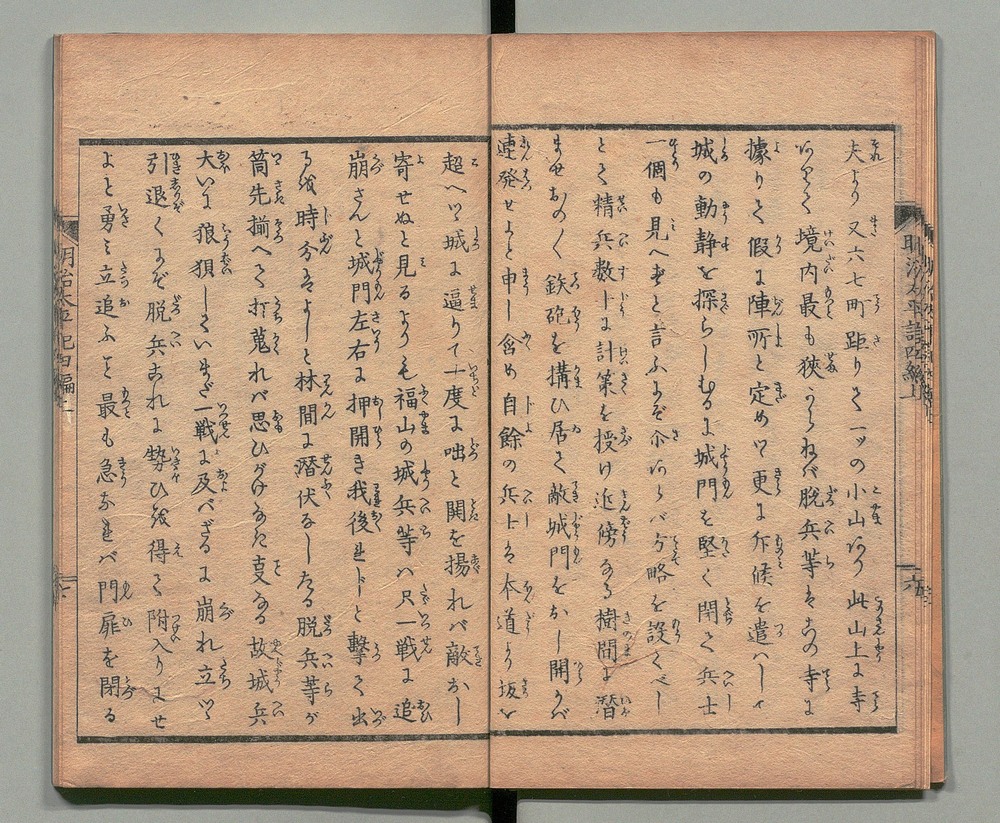 夫より又六七町距りて一ッの小山あり此山上に寺
ありて境内最も狭からねバ脱兵等ハ右の寺に
據りて假に陣所と定めツ更に斥候を遣ハして
城の動静を探らしむるに城門を堅く閉て兵士
一個も見へずと言ふにぞ亦あらバ方略を設くべし
とて精兵数十に計策を授け近傍なる樹間に潜
ませおの〱鉄砲を搆ひ居て敵城門をおし開かバ
連発せよと申し含め自餘の兵士ハ本道より坂を
超へツ城に逼りて一度に咄と鬨を揚れバ敵おし
寄せぬと見るよりも福山の城兵等ハ尺一戦に追
崩さんと城門左右に押開き我後れじと撃て出
るを時分ハよしと林間に潜伏なしたる脱兵等が
筒先揃へて打蒐れバ思ひがけなき事なる故城兵
大いに狼狽していまだ一戦に及バざるに崩れ立ツ
引退くにぞ脱兵右れに勢ひを得て附入りにせ
よと勇み立追ふこと最も急なれバ門扉を閉る
明治太平記四編上
明治太平記四編上
六